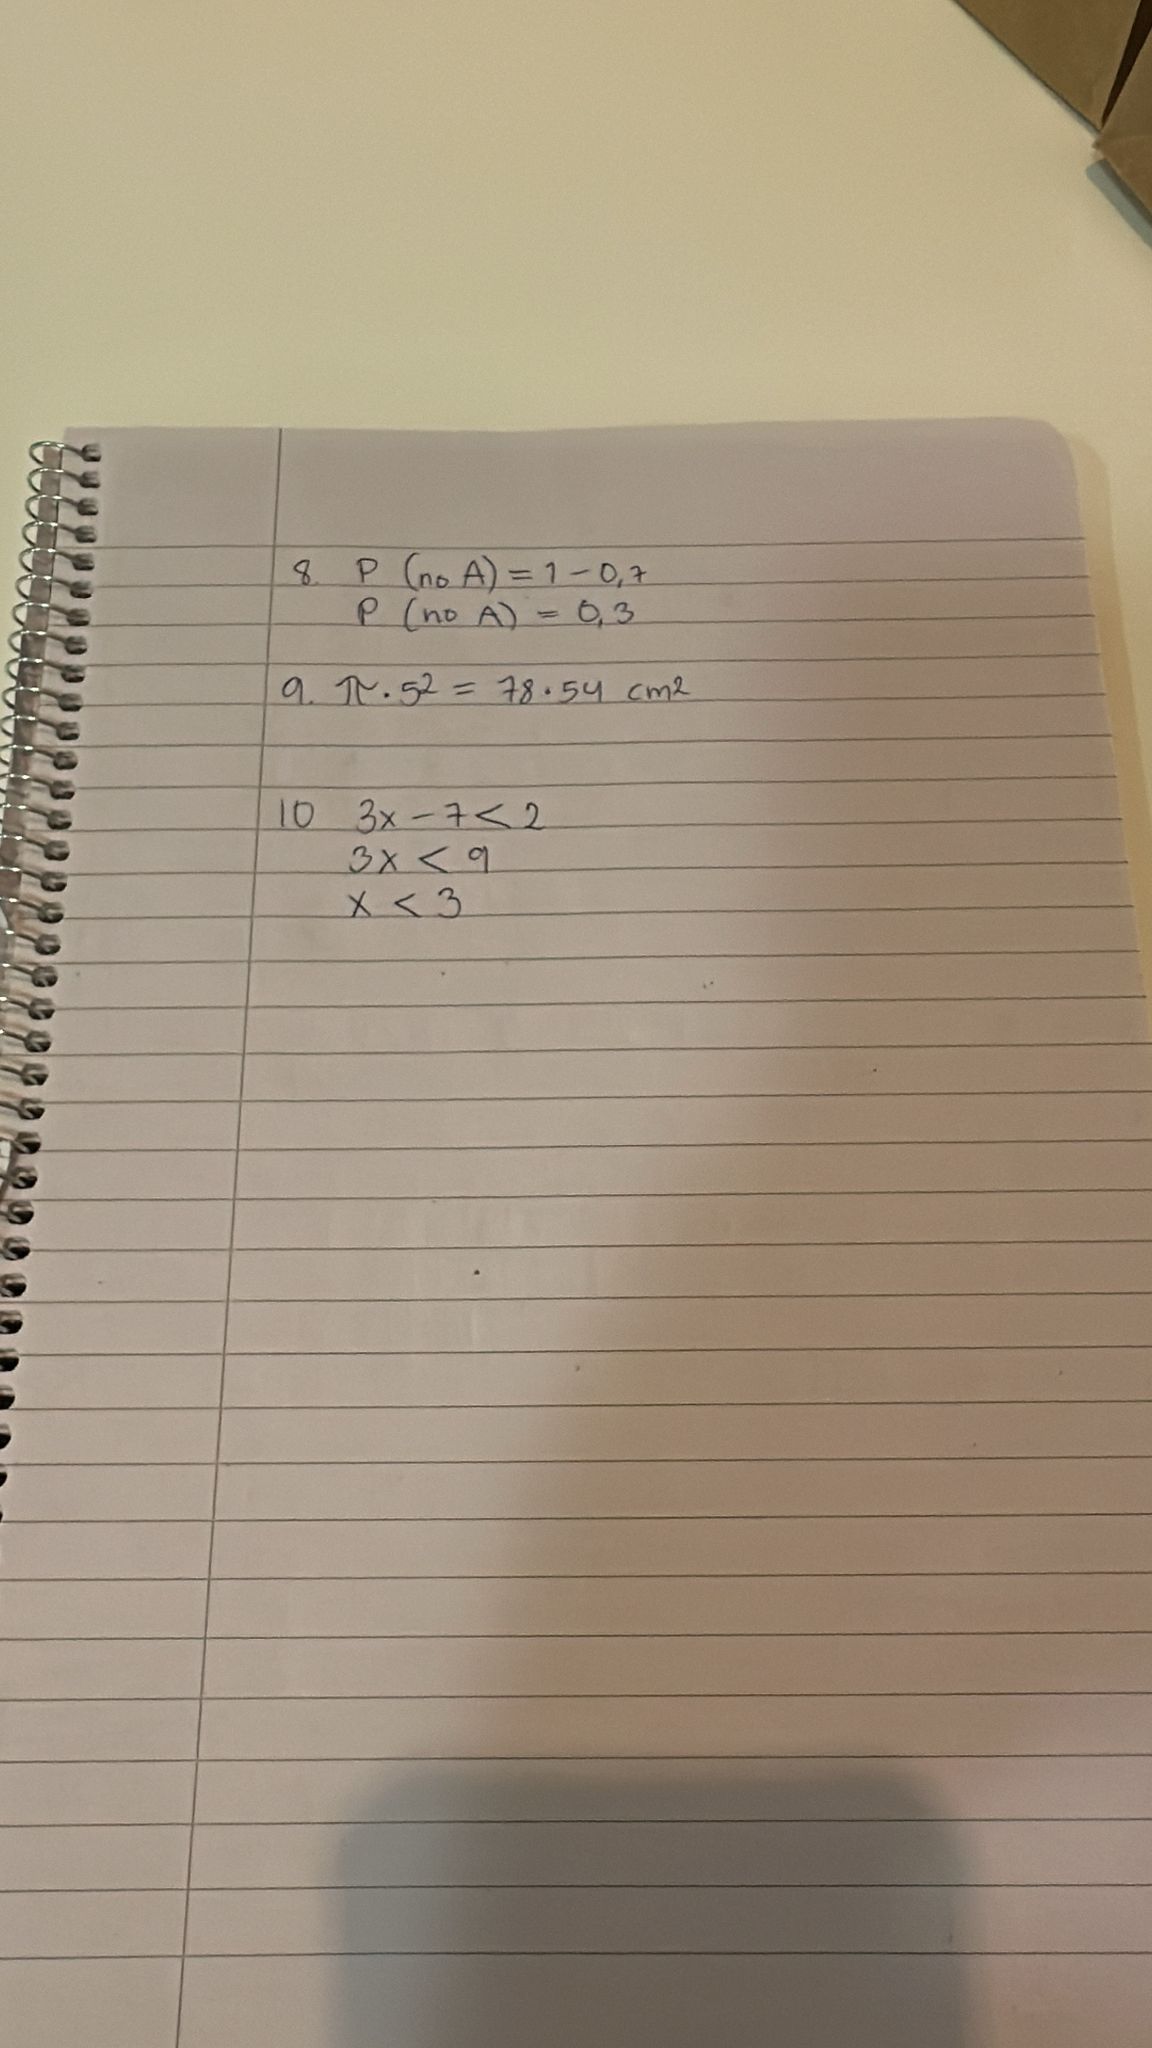 8. P (no A) = 1 - 0,7
P (no A) = 0,3
9. π · 5² = 78.54 cm²
10 3x - 7 < 2
3x < 9
x < 3